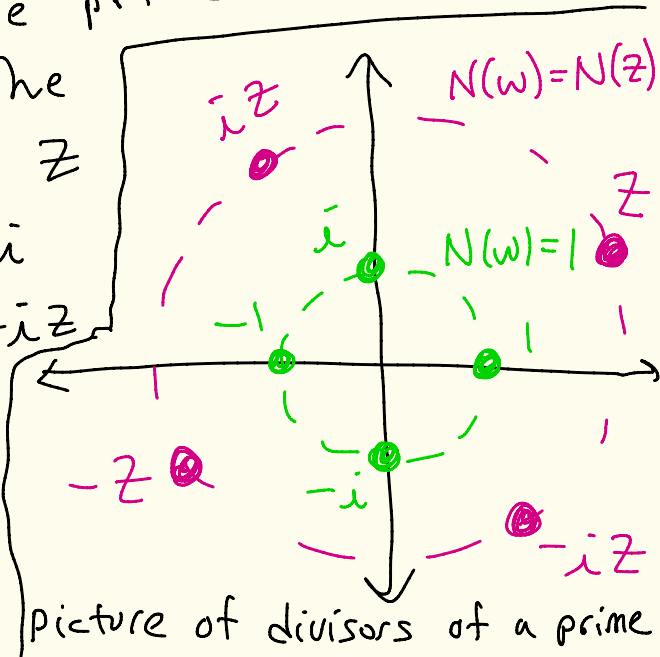 e pri
he
z
i
-iz
N(w)=N(z)
iz
z
i
N(w)=1
-1
1
-z
-i
-iz
picture of divisors of a prime